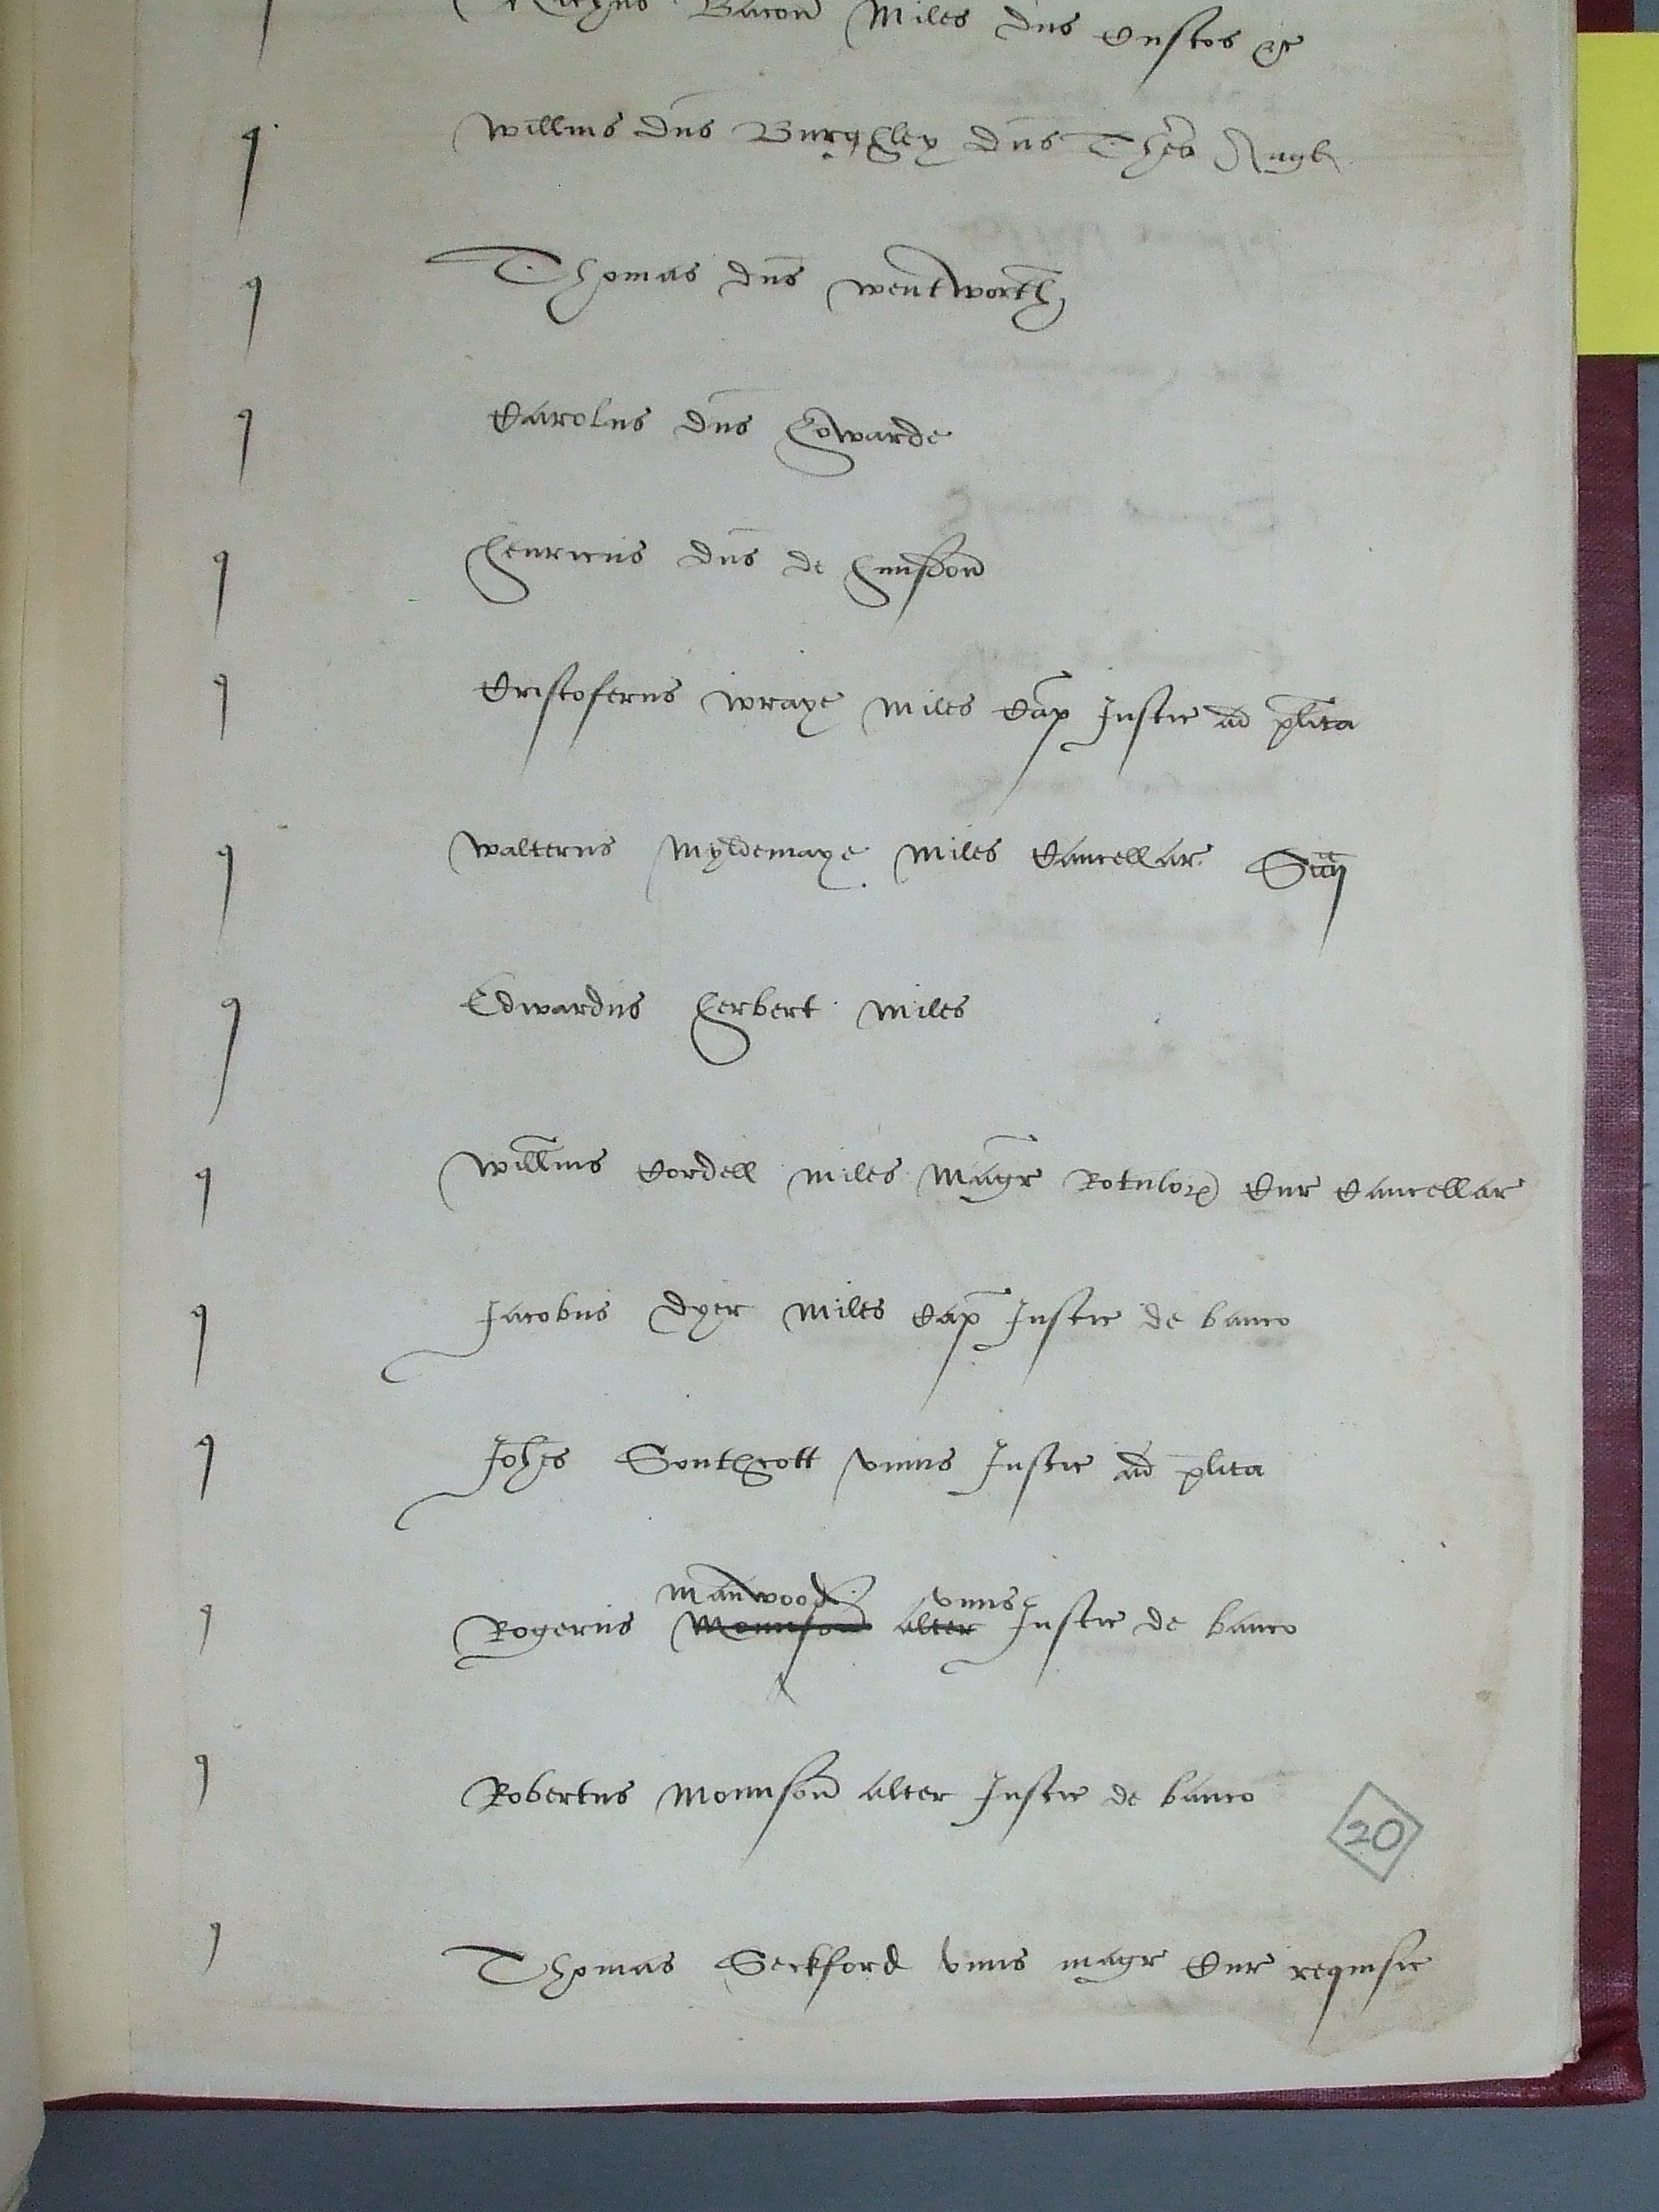 Bacon Miles dns Custos &c
Willms dns Burghley dns Thes Angl
Thomas dns Wentworth
Carolus dns Howarde
Henricus dns de Hunsdon
Cristoferus Wraye Miles Cap Justic ad plita
Walterus Myldemaye Miles Cancellar Sccij
Edwardus Herbert Miles
Willms Cordell Miles Magr Rotulor Cur Cancellar
Jacobus Dyer Miles Cap Justic de banco
Johes Southcott unus Justic ad plita
Manwood unus
Rogerus Mounson alter Justic de banco
Robertus Mounson alter Justic de banco
20
Thomas Seckford unus magr Cur requisic